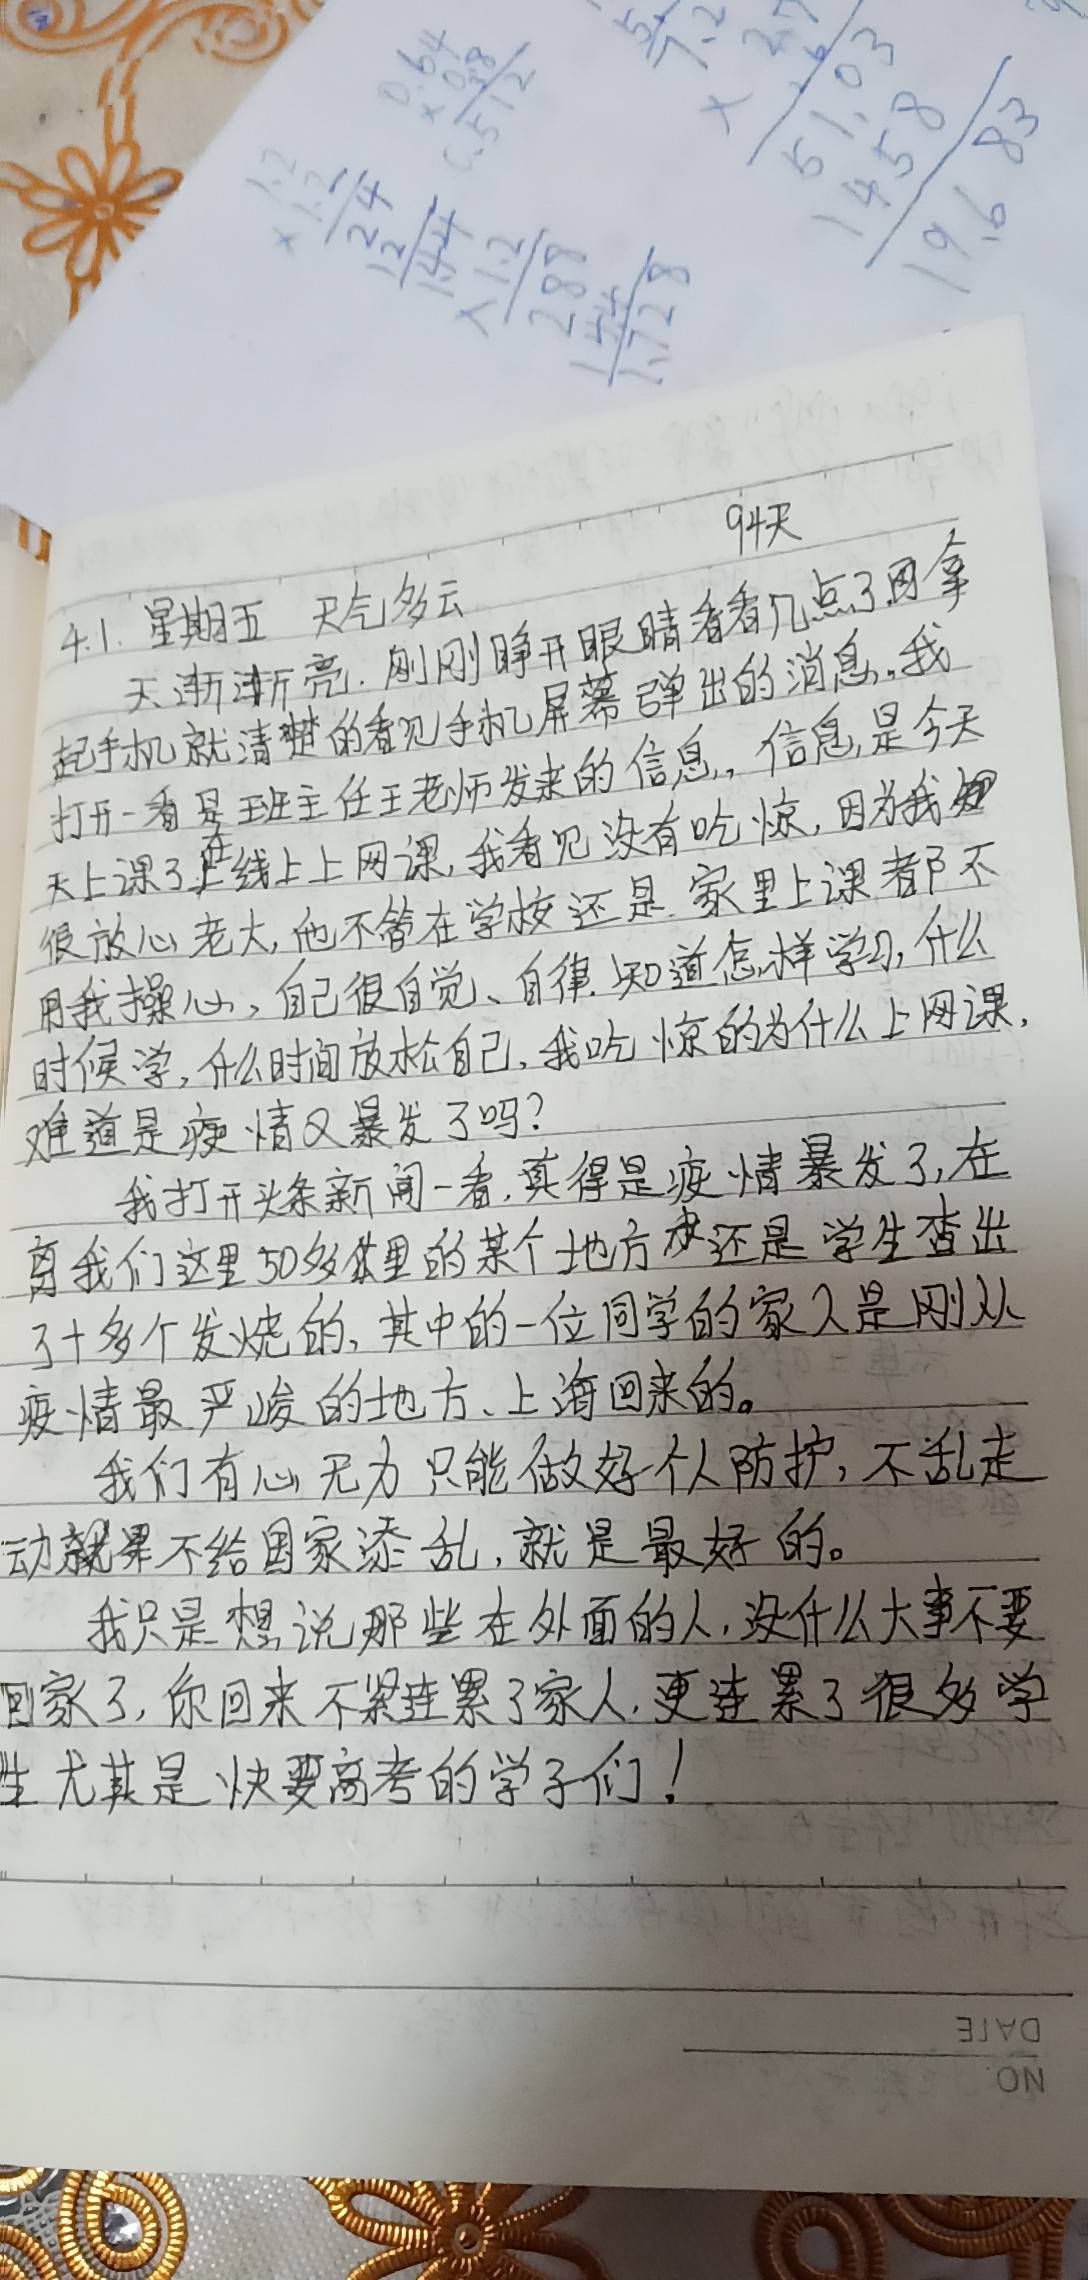 0.64
×0.8
0.512
1.2
×1.2
24
12
1.44
×1.2
288
144
1.728
7.2
×
51.03
1458
19683
94天
4.1. 星期五 天气多云
天渐渐亮.刚刚睁开眼睛看看几点了.因拿
起手机就清楚的看见手机屏幕弹出的消息。我
打开一看是班主任王老师发来的信息。信息,是今天
天上课了在线上上网课,我看见没有吃惊,因为我
很放心老大,他不管在学校还是家里上课都不
用我操心,自己很自觉、自律.知道怎么样学习,什么
时候学,什么时间放松自己,我吃惊的为什么上网课,
难道是疫情又暴发了吗?
我打开头条新闻一看,真得是疫情暴发了,在
离我们这里50多公里的某个地方还是学生查出
了十多个发烧的,其中的一位同学的家人是刚从
疫情最严峻的地方、上海回来的。
我们有心无力只能做好个人防护,不乱走
动就不给国家添乱,就是最好的。
我只是想说那些在外面的人,没什么大事不要
回家了,你回来不紧连累了家人,更连累了很多学
生尤其是快要高考的学子们!
DATE
NO.